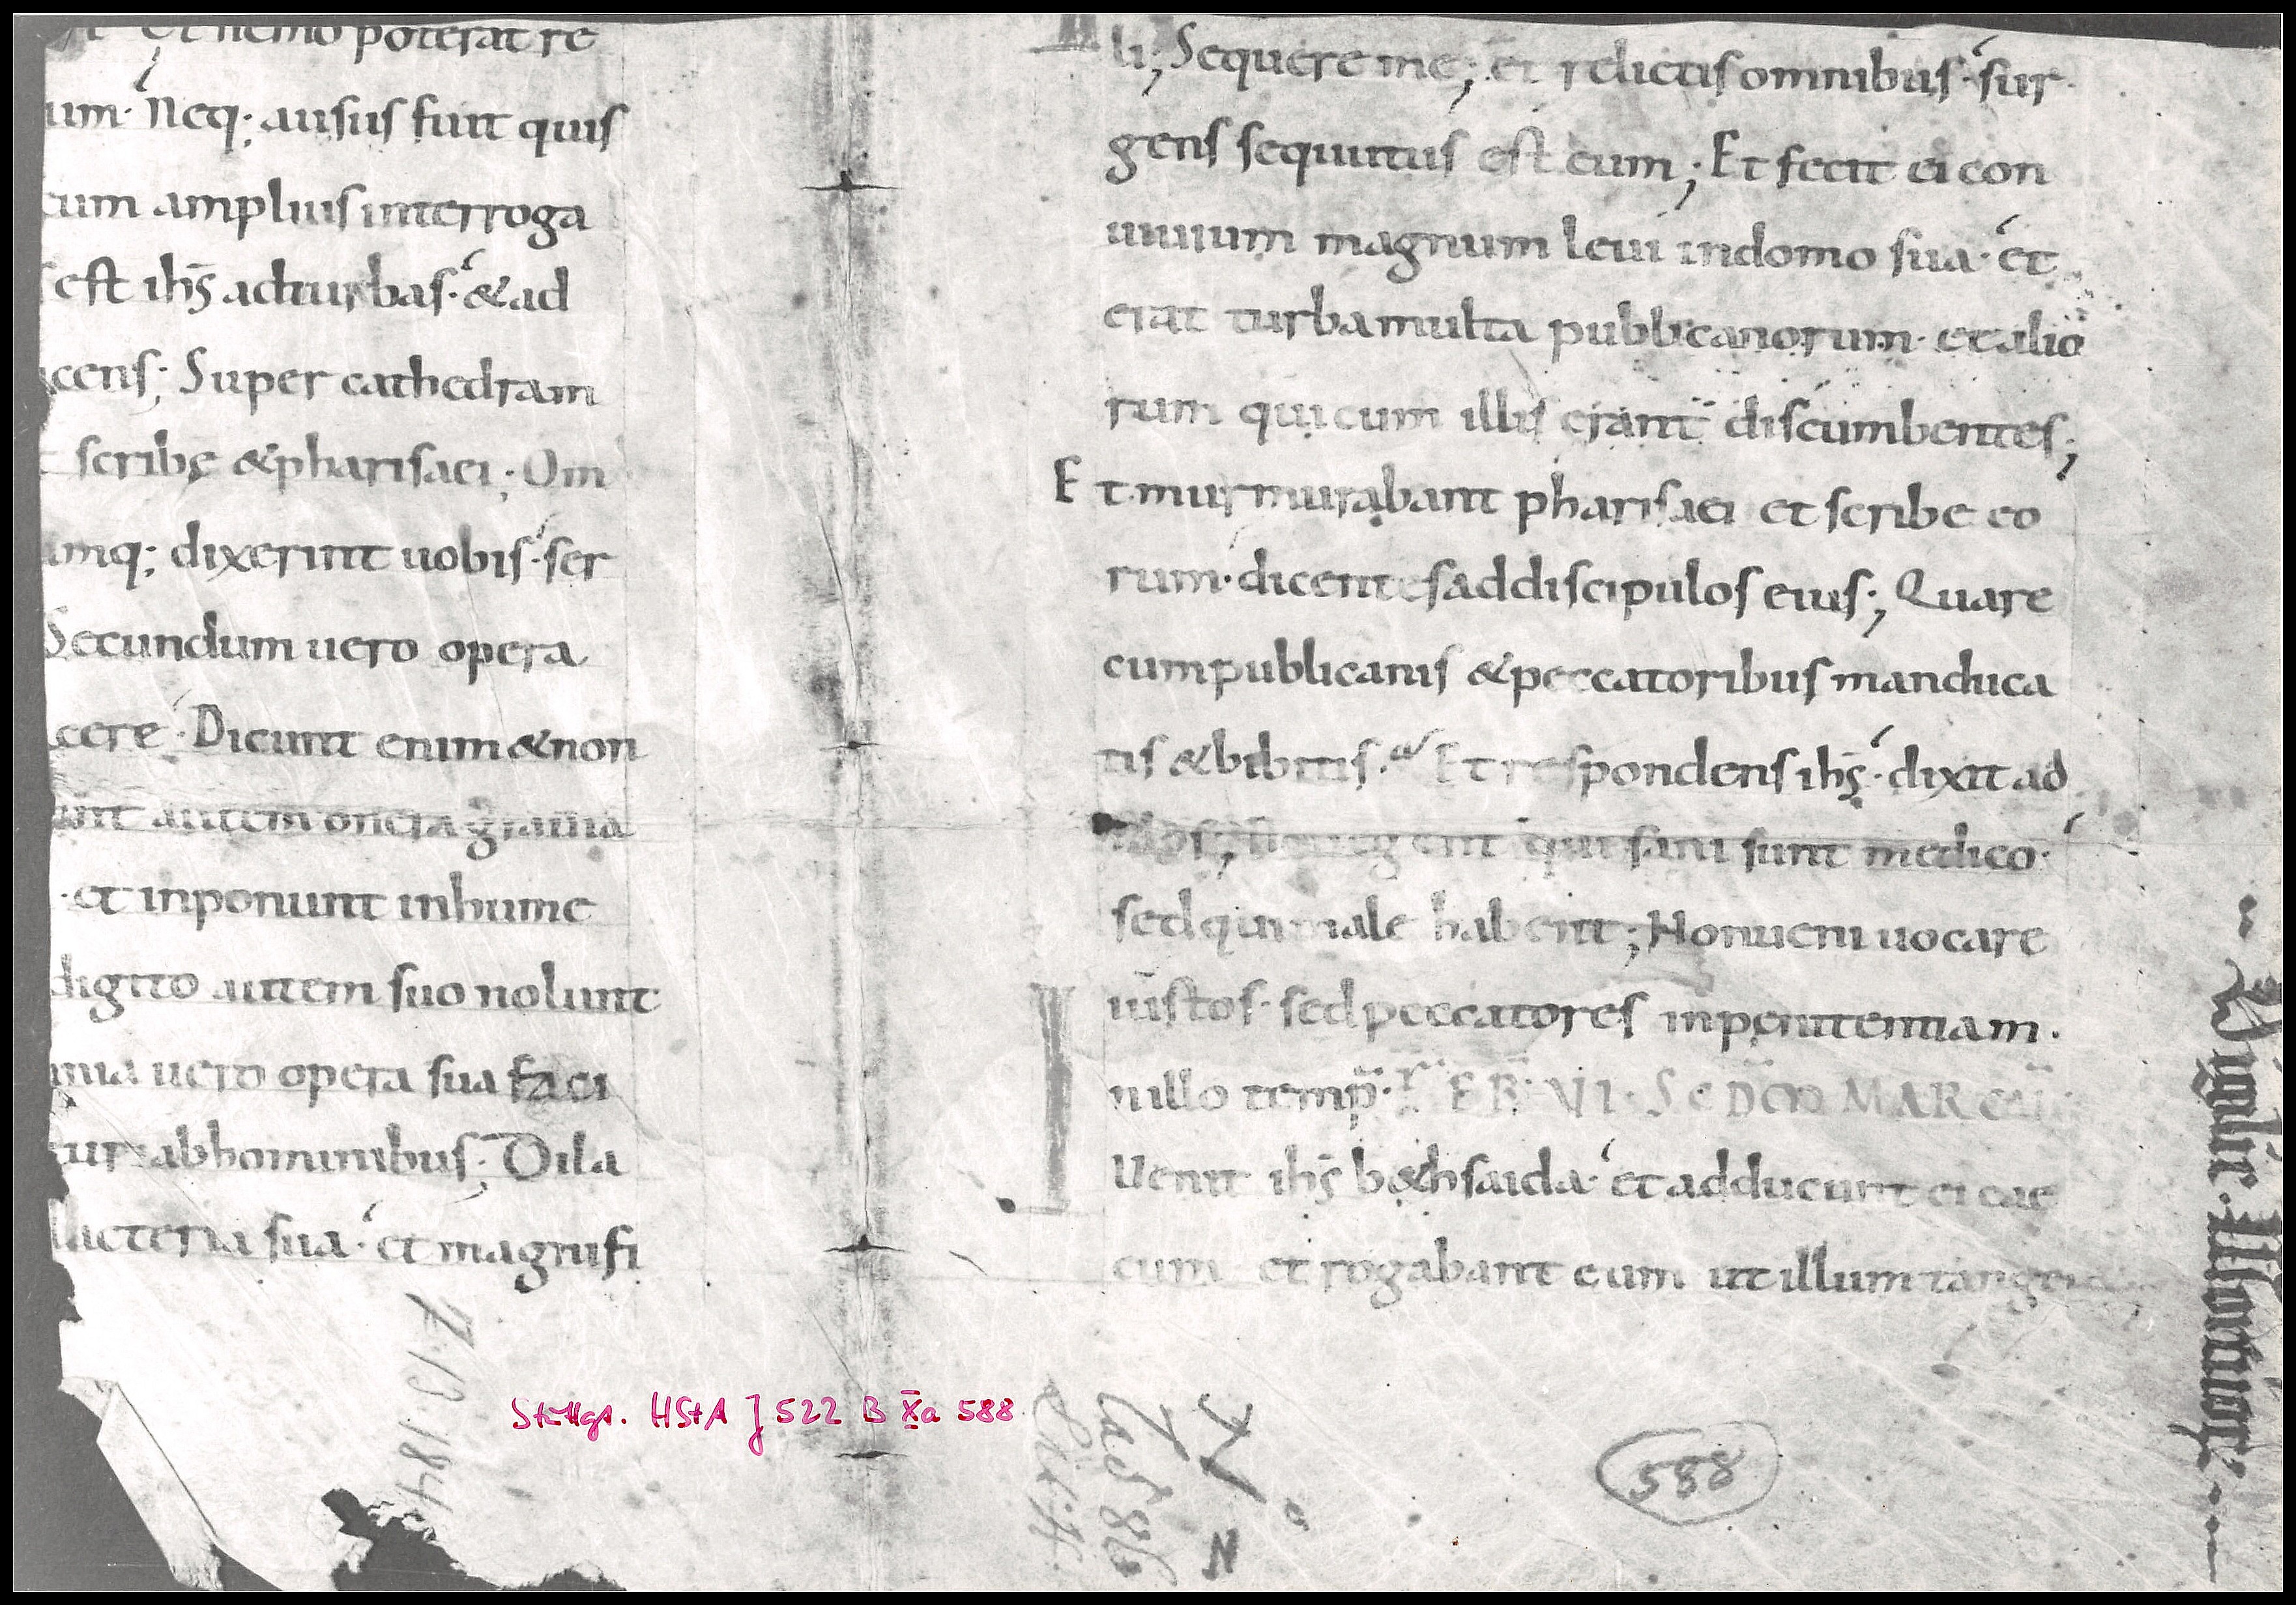 Et nemo poterat re
um· Neq; ausus fuit quis
eum amplius interroga
est ihs̄ adturbas· & ad
cens; Super cathedram
scribę & pharisaei; Om
umq; dixerint uobis· ser
Secundum uero opera
cere· Dicunt enim & non
unt autem onera grauia
· et inponunt inhume
digito autem suo nolunt
mnia uero opera sua faci
tur abhominibus; Dila
lacteria sua· et magnifi
li; Sequere me; et relictis omnibus· sur
gens sequutus est eum; Et fecit ei con
uiuium magnum leui indomo sua· et
erat turba multa publicanorum· et alio
rum qui cum illis erant discumbentes;
Et murmurabant pharisaei et scribe eo
rum· dicentes ad discipulos eius; Quare
cum publicanis & peccatoribus manduca
tis & bibitis· Et respondens ihs̄· dixit ad
egent qui sani sunt medico·
sed qui male habent; Non ueni uocare
iustos· sed peccatores inpenitentiam·
In illo temp̄· FER· VI· SCDM MARCU
Uenit ihs̄ b&hsaida· et adducunt ei cae
cum et rogabant eum ut illum tang
Stuttg. HStA J 522 B Xa 588
588
N